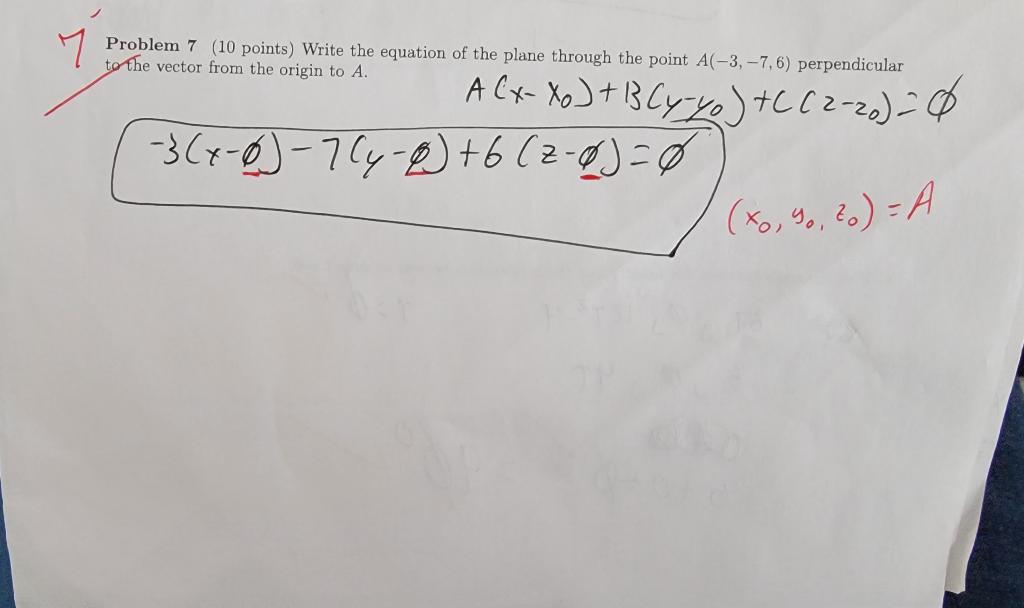 7
Problem 7 (10 points) Write the equation of the plane through the point A(−3, −7, 6) perpendicular
to the vector from the origin to A.
A(x-x₀)+B(y-y₀)+C(z-z₀)=∅
-3(x-∅)-7(y-∅)+6(z-∅)=∅
(x₀, y₀, z₀) = A